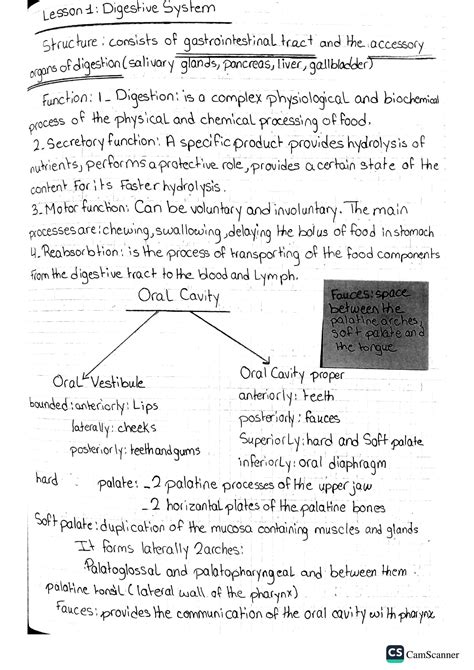 Lesson 1: Digestive System
Structure: consists of gastrointestinal tract and the accessory
organs of digestion (salivary glands, pancreas, liver, gallbladder)
Function: 1_ Digestion: is a complex physiological and biochemical
process of the physical and chemical processing of food.
2_Secretory function: A specific product provides hydrolysis of
nutrients, performs a protective role, provides a certain state of the
content for its faster hydrolysis.
3_Motor function: Can be voluntary and involuntary. The main
processes are: chewing, swallowing, delaying the bolus of food in stomach
4_Reabsorbtion: is the process of transporting of the food components
from the digestive tract to the blood and lymph.
Oral Cavity
Fauces: space
between the
palatine arches,
soft palate and
the tongue
Oral Vestibule
bounded: anteriorly: Lips
laterally: cheeks
posteriorly: teeth and gums
Oral Cavity proper
anteriorly: teeth
posteriorly: fauces
Superiorly: hard and Soft palate
inferiorly: oral diaphragm
hard palate: _2 palatine processes of the upper jaw
_2 horizontal plates of the palatine bones
Soft palate: duplication of the mucosa containing muscles and glands
It forms laterally 2 arches:
Palatoglossal and palatopharyngeal and between them
palatine (lateral wall of the pharynx)
Fauces: provides the communication of the oral cavity with pharynx
CS CamScanner